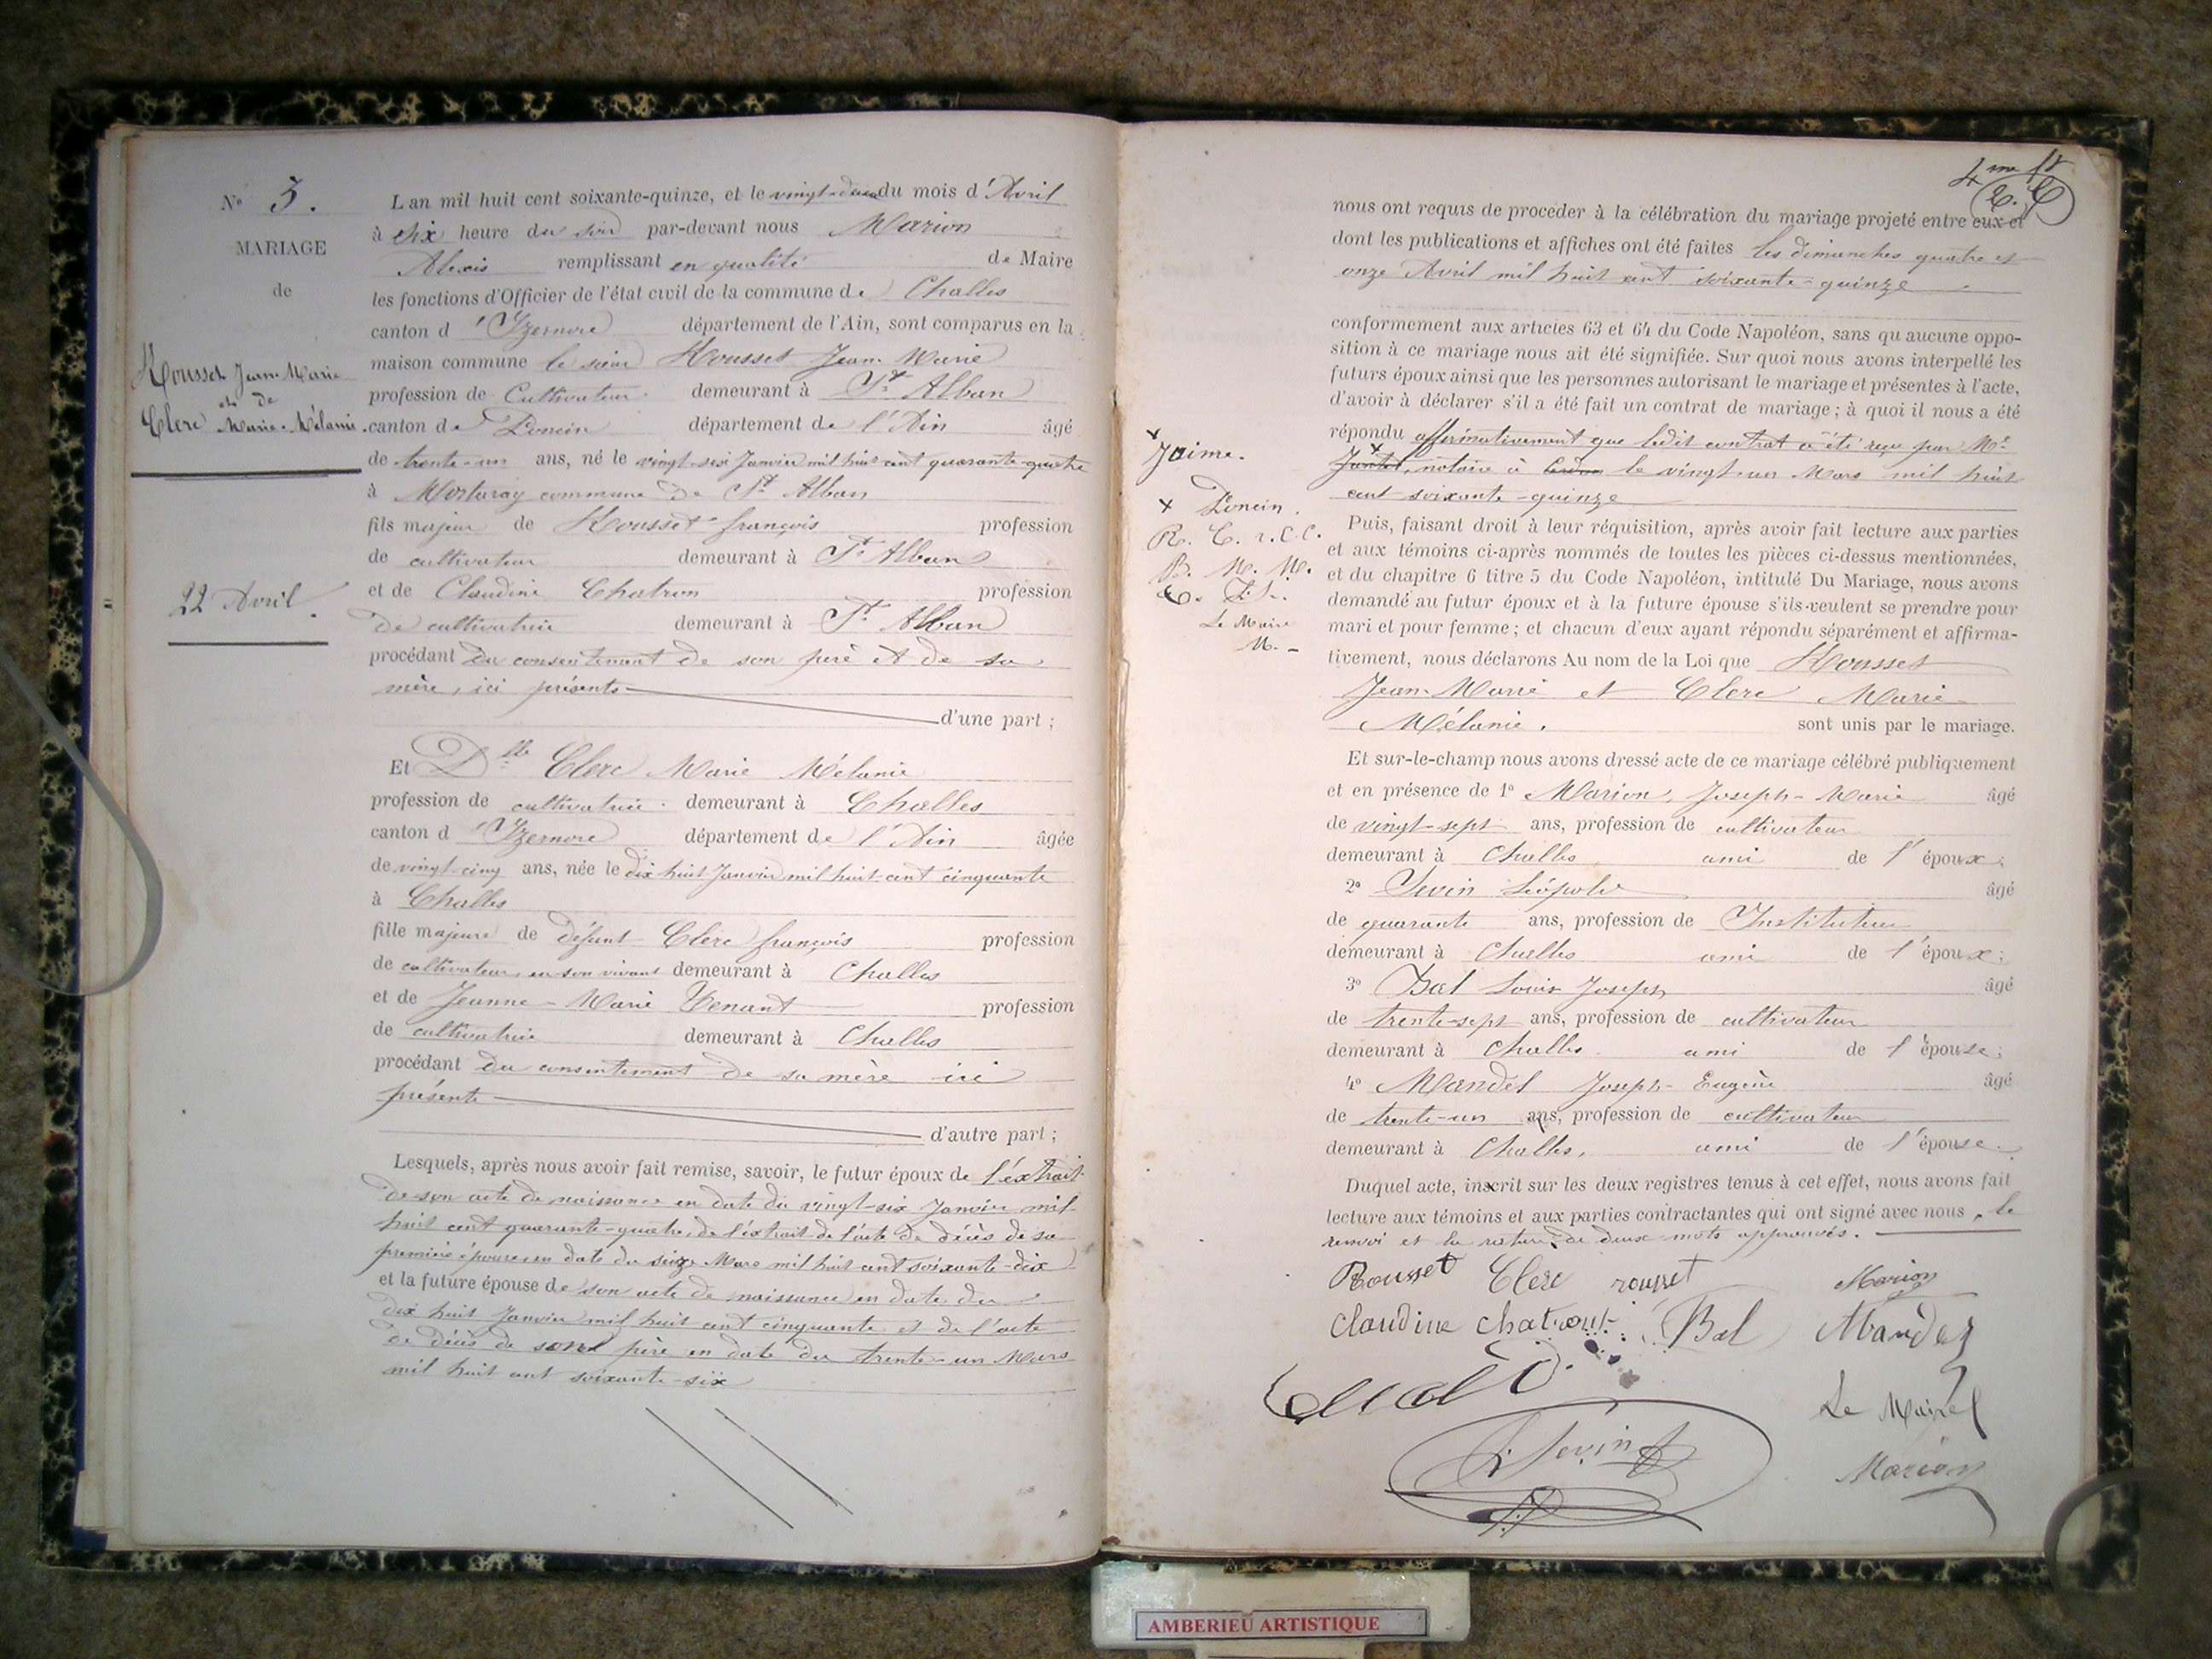 N° 3.
MARIAGE
de
Rousset Jean-Marie
et de
Clerc Marie-Mélanie.
22 Avril.
L'an mil huit cent soixante-quinze, et le vingt-deux du mois d'Avril
à six heure du soir par-devant nous Marion
Alexis remplissant en qualité de Maire
les fonctions d'Officier de l'état civil de la commune de Challes
canton d'Izernore département de l'Ain, sont comparus en la
maison commune le sieur Rousset Jean-Marie
profession de Cultivateur demeurant à St Alban
canton de Poncin département de l'Ain âgé
de trente-un ans, né le vingt-six Janvier mil huit cent quarante-quatre
à Mortaray commune de St Alban
fils majeur de Rousset françois profession
de cultivateur demeurant à St Alban
et de Claudine Chatron profession
de cultivatrice demeurant à St Alban
procédant du consentement de son père et de sa
mère, ici présents
d'une part ;
Et Dlle Clerc Marie Mélanie
profession de cultivatrice demeurant à Challes
canton d'Izernore département de l'Ain âgée
de vingt-cinq ans, née le dix huit Janvier mil huit cent cinquante
à Challes
fille majeure de défunt Clerc françois profession
de cultivateur en son vivant demeurant à Challes
et de Jeanne-Marie Venant profession
de cultivatrice demeurant à Challes
procédant du consentement de sa mère ici
présente
d'autre part ;
Lesquels, après nous avoir fait remise, savoir, le futur époux de l'éxtrait
de son acte de naissance en date du vingt-six Janvier mil
huit cent quarante-quatre, de l'éxtrait de l'acte de décès de sa
première épouse en date du seize Mars mil huit cent soixante-dix
et la future épouse de son acte de naissance en date du
dix huit Janvier mil huit cent cinquante et de l'acte
de décès de son père en date du trente-un Mars
mil huit cent soixante-six
4me ft
nous ont requis de procéder à la célébration du mariage projeté entre eux et
dont les publications et affiches ont été faites les dimanches quatre et
onze Avril mil huit cent soixante-quinze
conformément aux articles 63 et 64 du Code Napoléon, sans qu'aucune oppo-
sition à ce mariage nous ait été signifiée. Sur quoi nous avons interpellé les
futurs époux ainsi que les personnes autorisant le mariage et présentes à l'acte,
d'avoir à déclarer s'il a été fait un contrat de mariage ; à quoi il nous a été
répondu affirmativement que ledit contrat a été reçu par Me
notaire à le vingt-un Mars mil huit
cent soixante-quinze
+ Jaime.
+ Poncin.
R. C. r. C. C.
B. M. M.
Le Maire
M.
Puis, faisant droit à leur réquisition, après avoir fait lecture aux parties
et aux témoins ci-après nommés de toutes les pièces ci-dessus mentionnées,
et du chapitre 6 titre 5 du Code Napoléon, intitulé Du Mariage, nous avons
demandé au futur époux et à la future épouse s'ils veulent se prendre pour
mari et pour femme ; et chacun d'eux ayant répondu séparément et affirma-
tivement, nous déclarons Au nom de la Loi que Rousset
Jean-Marie et Clerc Marie
Mélanie. sont unis par le mariage.
Et sur-le-champ nous avons dressé acte de ce mariage célébré publiquement
et en présence de 1° Marion, Joseph-Marie âgé
de vingt-sept ans, profession de cultivateur
demeurant à Challes, ami de l'époux ;
2° Sevin Léopold âgé
de quarante ans, profession de Instituteur
demeurant à Challes ami de l'époux ;
3° Bal Louis Joseph âgé
de trente-sept ans, profession de cultivateur
demeurant à Challes ami de l'épouse ;
4° Mandel Joseph-Eugène âgé
de trente-un ans, profession de cultivateur
demeurant à Challes, ami de l'épouse.
Duquel acte, inscrit sur les deux registres tenus à cet effet, nous avons fait
lecture aux témoins et aux parties contractantes qui ont signé avec nous, le
renvoi et la rature de deux mots approuvés.
Rousset Clerc rousset Marion
Claudine chatront Bal Mandel
L. Sevin
Le Maire
Marion
AMBERIEU ARTISTIQUE